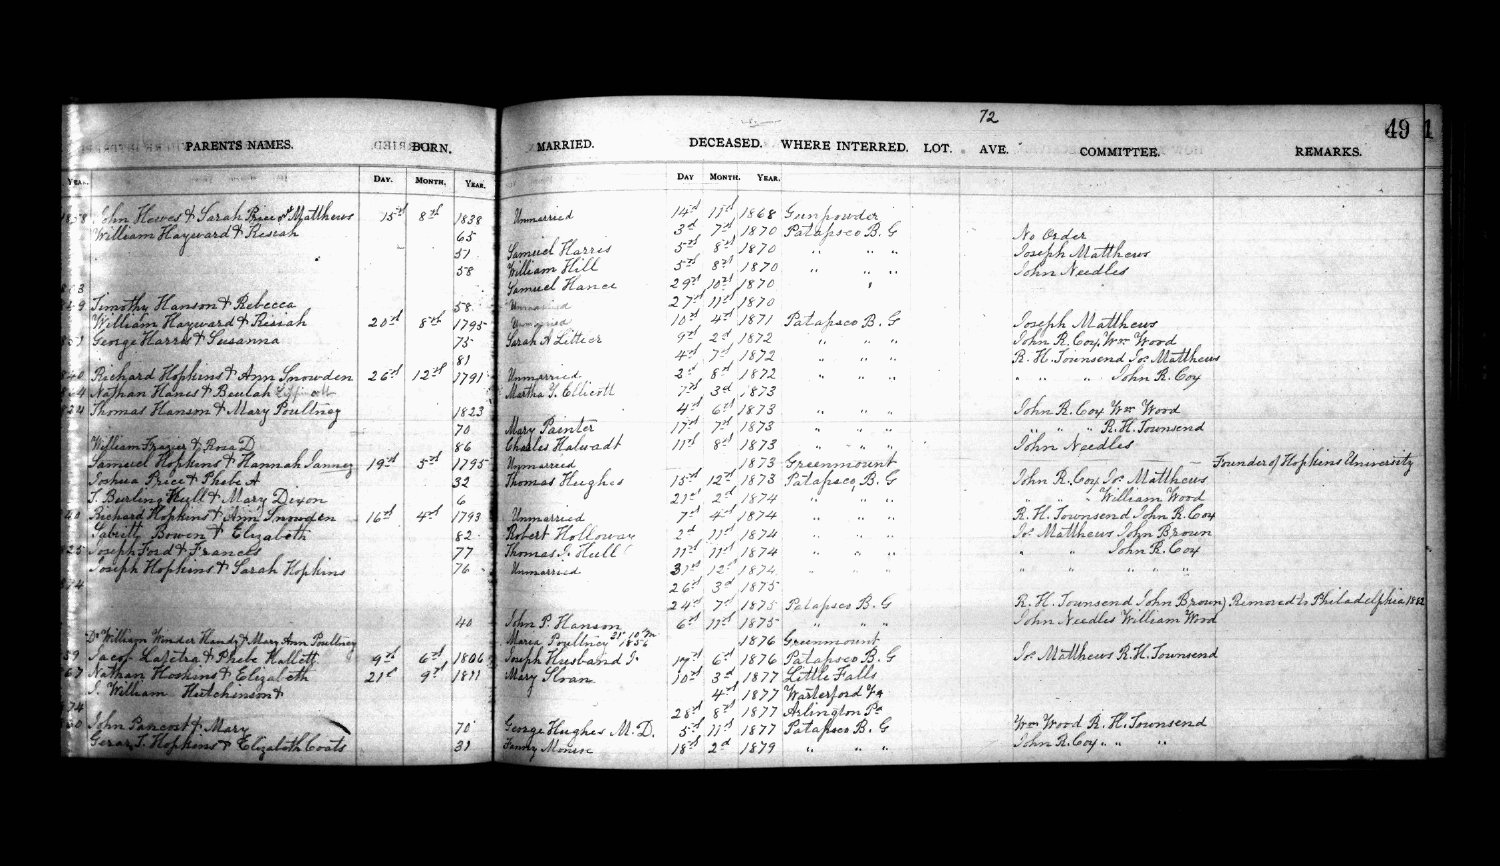 72
49 1
PARENTS NAMES. BORN. MARRIED. DECEASED. WHERE INTERRED. LOT. AVE. COMMITTEE. REMARKS.
YEAR. DAY. MONTH. YEAR. DAY MONTH. YEAR.
John Hewes & Sarah Price & Matthews 15 8 1838 Unmarried 14 11 1868 Gunpowder
William Hayward & Kesiah 65 3d 7 1870 Patapsco B. G No Order
57 Samuel Harris 5 8 1870 " " " Joseph Matthews
58 William Hill 5 8 1870 " " " John Needles
Samuel Hance 29 10 1870 "
Timothy Hanson & Rebecca 58 Unmarried 27 11 1870
William Hayward & Kesiah 20 8 1795 Unmarried 10 4 1871 Patapsco B. G Joseph Matthews
George Harris & Susanna 75 Sarah A 9 2d 1872 " " " John R. Cox, Wm Wood
81 4 7 1872 " " " R. H. Townsend Jos Matthews
Richard Hopkins & Ann Snowden 26 12 1791 Unmarried 2d 8 1872 " " " " " " John R. Cox
Nathan Hanes & Beulah Martha Y. Ellicott 7 3d 1873
Thomas Hanson & Mary Poultney 1823 4 6 1873 " " " John R. Cox Wm Wood
70 Mary Painter 17 7 1873 " " " " " " R. H. Townsend
William Frazier & Rosa D 86 Charles 11 8 1873 " " " John Needles
Samuel Hopkins & Hannah Janney 19 5 1795 Unmarried 1873 Greenmount Founder of Hopkins University
Joshua Price & Phebe A 32 Thomas Hughes 15 12 1873 Patapsco, B. G John R. Cox Jos Matthews
T. Burling Hull & Mary Dixon 6 21 2d 1874 " " " " " William Wood
Richard Hopkins & Ann Snowden 16 4 1793 Unmarried 7 4 1874 " " " R. H. Townsend John R. Cox
Bowen & Elizabeth 82 Robert Holloway 2d 11 1874 " " " Jos Matthews John Brown
Joseph Ford & Frances 77 Thomas J. Hull 11 11 1874 " " " " " John R. Cox
Joseph Hopkins & Sarah Hopkins 76 Unmarried 31 12 1874 " " " " " " "
26 3d 1875
24 7 1875 Patapsco B. G R. H. Townsend John Brown) Removed to Philadelphia 1882
40 John P. Hanson 6 11 1875 " " " John Needles William Wood
Dr William Winder Handy & Mary Ann Poultney Maria Poultney 1856 1876 Greenmount
Jacob Lafetra & Phebe Hallett 9 6 1806 Joseph Husband Jr 17 6 1876 Patapsco B. G Jos Matthews R. H. Townsend
67 Nathan Hoskins & Elizabeth 21 9 1811 Mary Sloan 10 3d 1877 Little Falls
J. William Hutchinson & 4 1877 Warterford Va
28 8 1877 Arlington Pa
John Pancost & Mary 70 George Hughes M. D. 5 11 1877 Patapsco B. G Wm Wood R. H. Townsend
Gerar, T. Hopkins & Elizabeth Coats 31 Fanny 18 2d 1879 " " " John R. Cox " " "